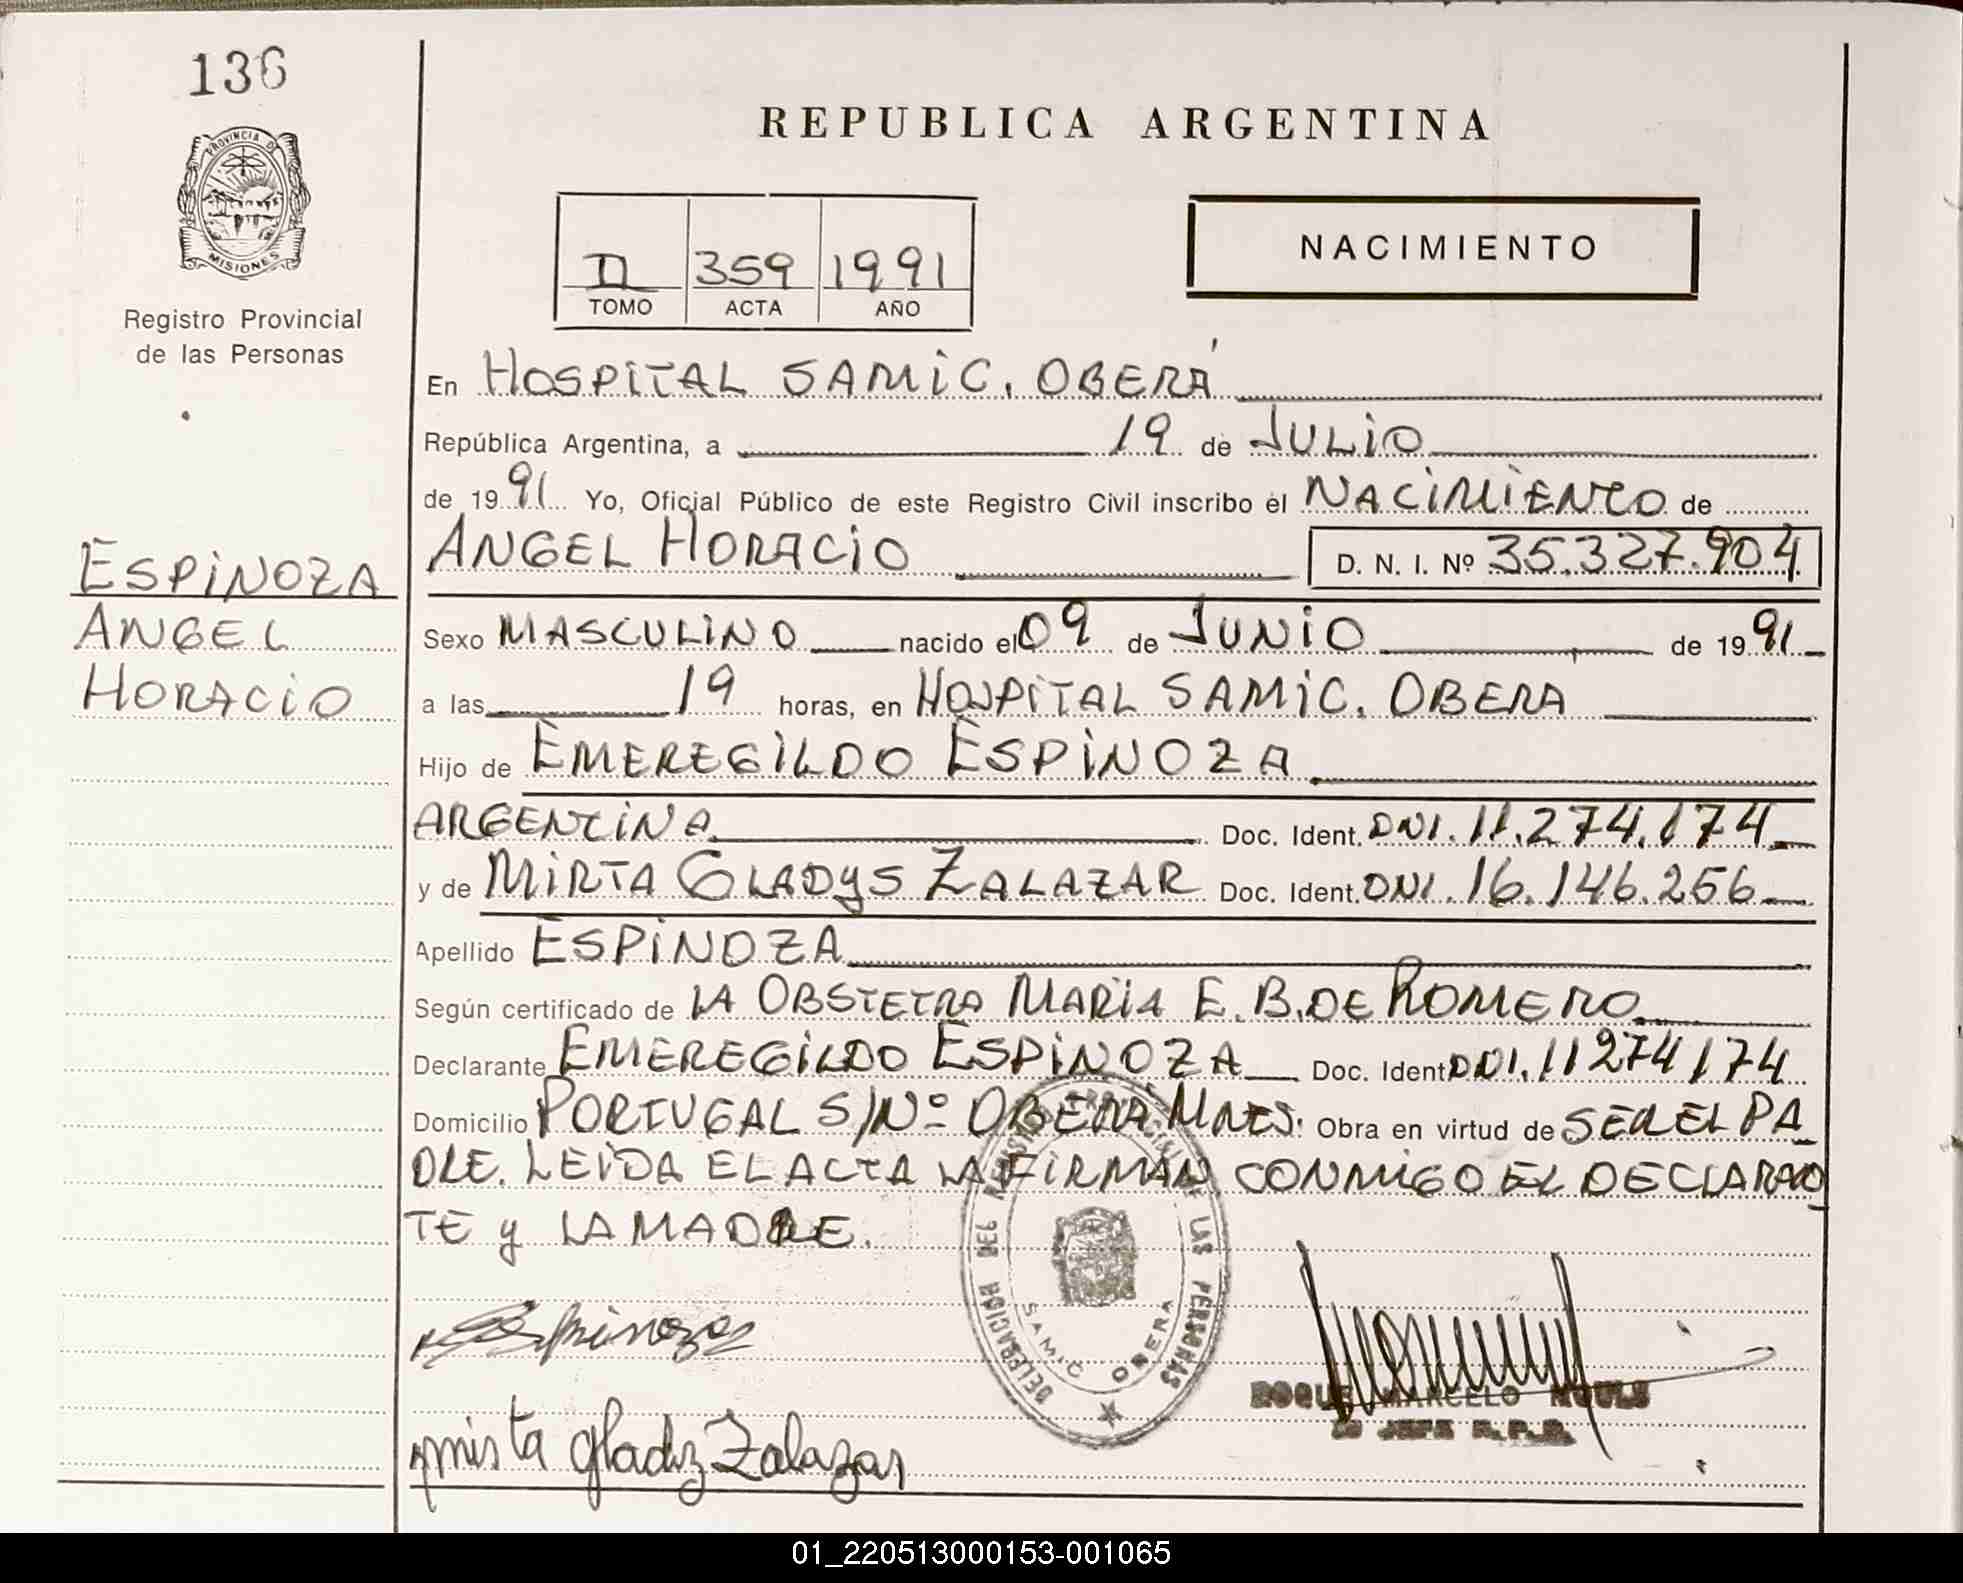 136
PROVINCIA DE
MISIONES
Registro Provincial
de las Personas
ESPINOZA
ANGEL
HORACIO
REPUBLICA ARGENTINA
II 359 1991
TOMO ACTA AÑO
NACIMIENTO
En HOSPITAL SAMIC. OBERÁ
República Argentina, a 19 de JULIO
de 1991 Yo, Oficial Público de este Registro Civil inscribo el NACIMIENTO de
ANGEL HORACIO D. N. I. Nº 35.327.904
Sexo MASCULINO nacido el 09 de JUNIO de 1991
a las 19 horas, en HOSPITAL SAMIC. OBERA
Hijo de EMEREGILDO ESPINOZA
ARGENTINA Doc. Ident. DNI. 11.274.174
y de MIRTA GLADYS ZALAZAR Doc. Ident. DNI. 16.146.256
Apellido ESPINOZA
Según certificado de LA OBSTETRA MARIA E. B. DE ROMERO
Declarante EMEREGILDO ESPINOZA Doc. Ident DNI. 11274174
Domicilio PORTUGAL S/Nº OBERA MNES. Obra en virtud de SER EL PA
DRE. LEIDA EL ACTA LA FIRMAN CONMIGO EL DECLARAN
TE y LA MADRE.
DELEGACION DEL REGISTRO PROVINCIAL DE LAS PERSONAS
SAMIC OBERA
Espinoza
ROQUE MARCELO
2º JEFE R.P.P.
mirta gladiz Zalazar
01_220513000153-001065